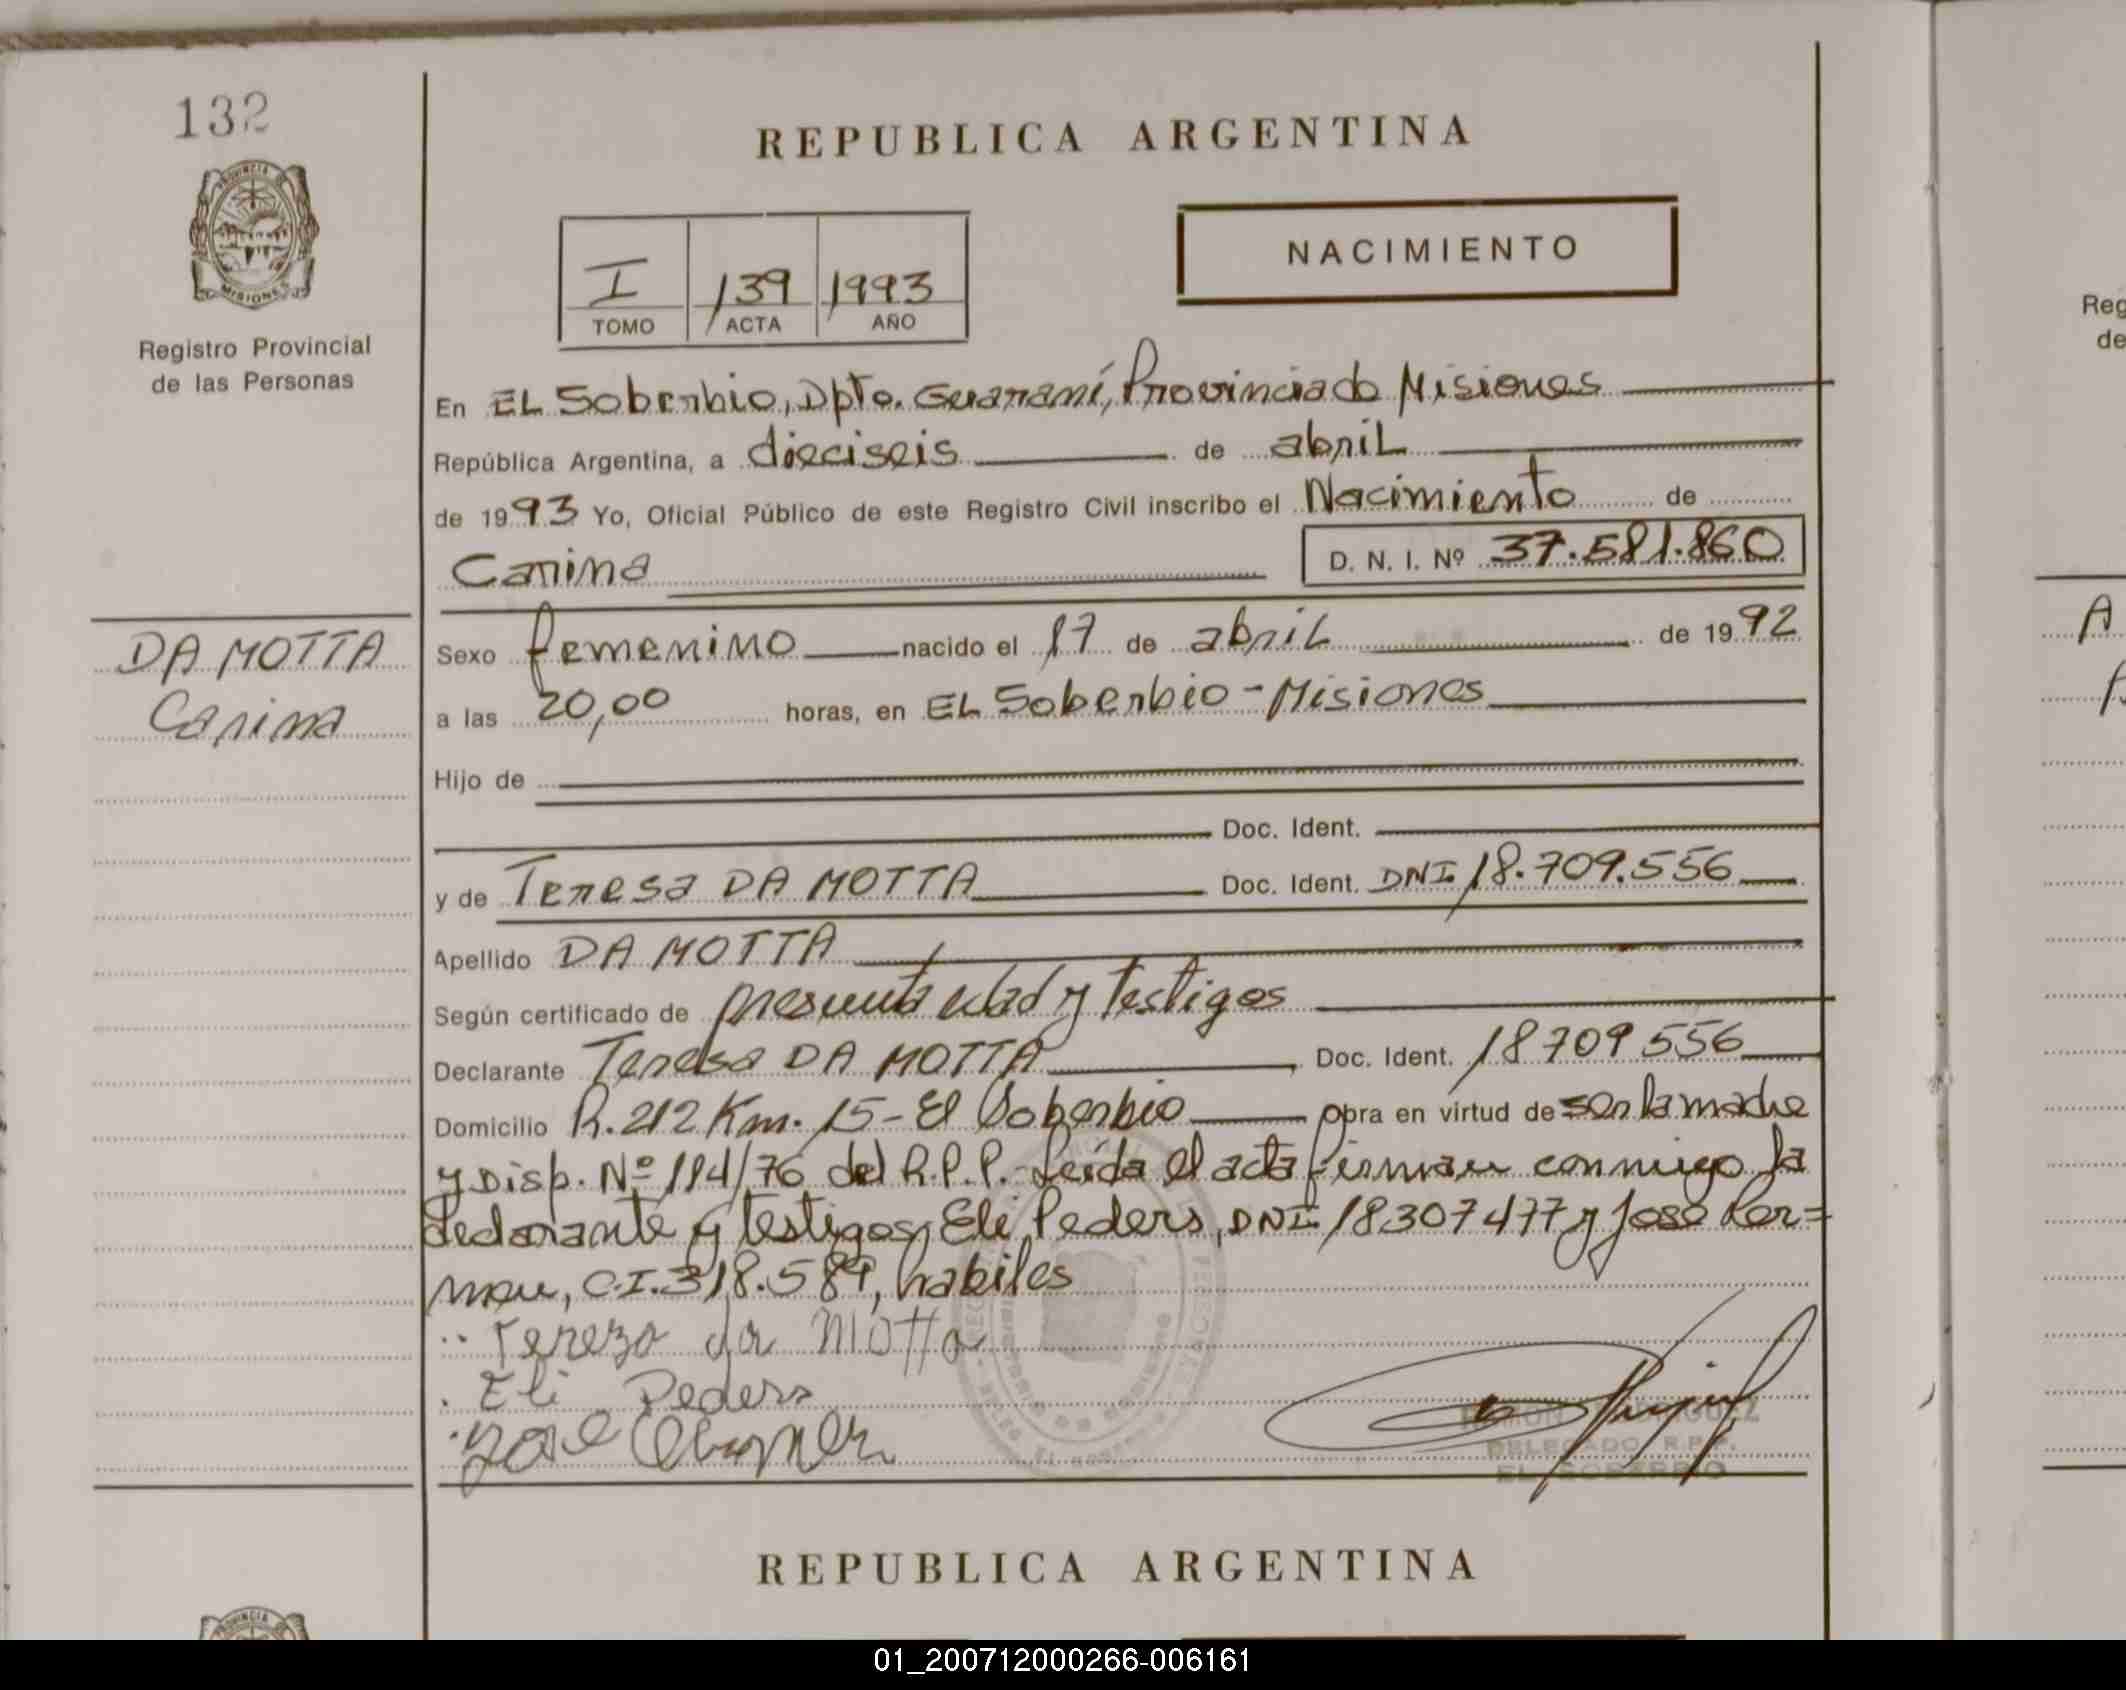 132
PROVINCIA DE
MISIONES
Registro Provincial
de las Personas
DA MOTTA
Carina
REPUBLICA ARGENTINA
I 139 1993
TOMO ACTA AÑO
NACIMIENTO
En EL Soberbio, Dpto. Guaraní, Provincia de Misiones
República Argentina, a dieciseis de abril
de 1993 Yo, Oficial Público de este Registro Civil inscribo el Nacimiento de
Carina D. N. I. Nº 37.581.860
Sexo femenino nacido el 17 de abril de 1992
a las 20,00 horas, en EL Soberbio - Misiones
Hijo de
Doc. Ident.
y de Teresa DA MOTTA Doc. Ident. DNI. 18.709.556
Apellido DA MOTTA
Según certificado de presunta edad y testigos
Declarante Teresa DA MOTTA Doc. Ident. 18709556
Domicilio R. 212 Km. 15 - El Soberbio obra en virtud de ser la madre
y Disp. Nº 114/76 del R.P.P. - Leída el acta firman conmigo la
declarante y testigos, Eli Peders, DNI. 18307477 y José
C.I. 318.589, habiles
Tereza da Motta
Eli Peders
José
RAMON RODRIGUEZ
DELEGADO R.P.P.
EL SOBERBIO
REPUBLICA ARGENTINA
PROVINCIA
Reg
de
A
01_200712000266-006161